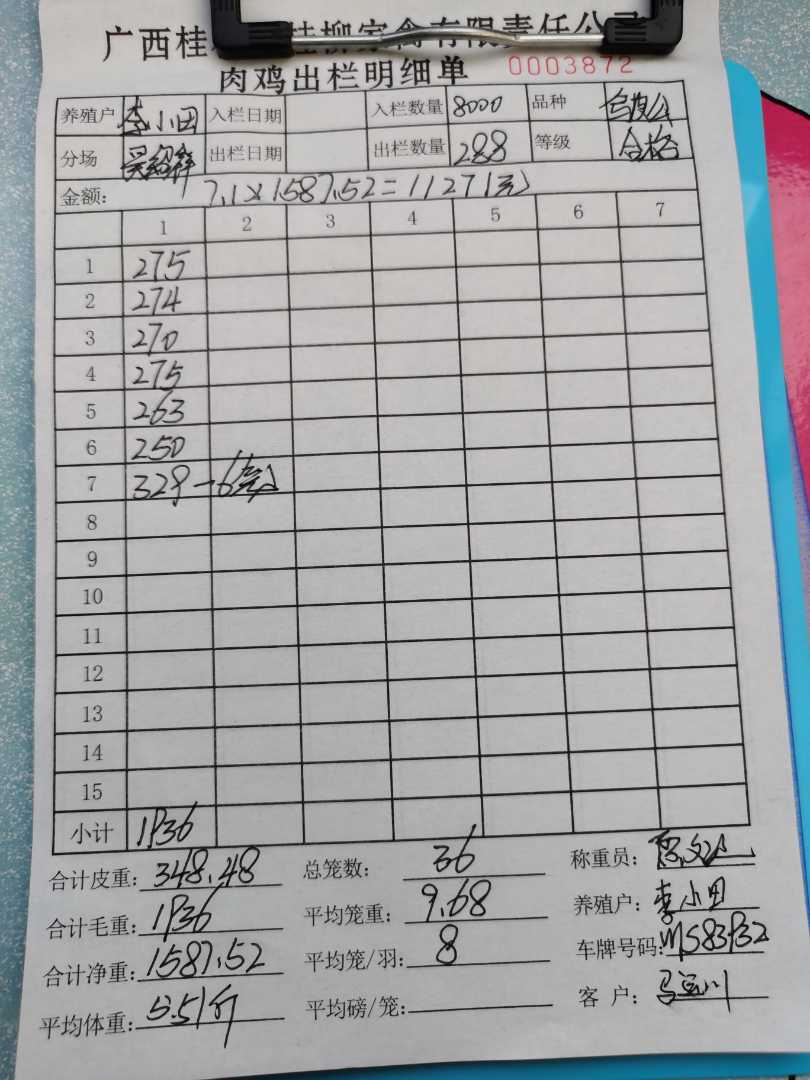 广西桂柳家禽有限责任公司
肉鸡出栏明细单 0003872
养殖户 李小田 入栏日期 入栏数量 8000 品种
分场 出栏日期 出栏数量 288 等级 合格
金额: 7.1×1587.52=11271元
1 2 3 4 5 6 7
1 275
2 274
3 270
4 275
5 263
6 250
7 329-6笼
8
9
10
11
12
13
14
15
小计 1936
合计皮重: 348.48 总笼数: 36 称重员:
合计毛重: 1936 平均笼重: 9.68 养殖户: 李小田
合计净重: 1587.52 平均笼/羽: 8 车牌号码:
平均体重: 5.51斤 平均磅/笼: 客 户: